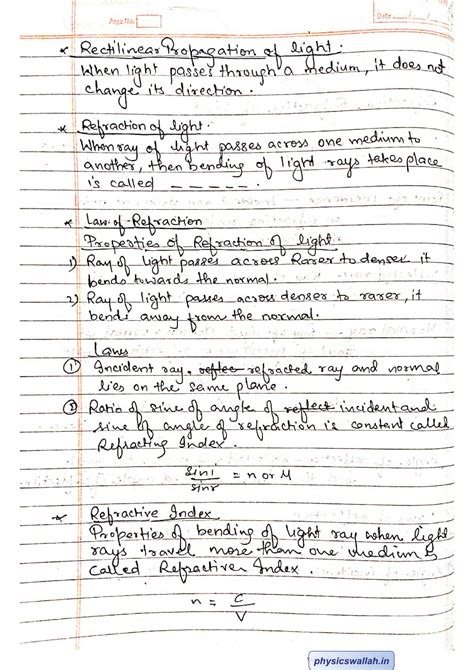 Page No.
Date
* Rectilinear Propagation of light :
When light passes through a medium, it does not
change its direction .
* Refraction of light .
When ray of light passes across one medium to
another, then bending of light rays takes place
is called _ _ _ _ _ .
* Law of Refraction
Properties of Refraction of light.
1) Ray of light passes across Rarer to denser it
bends towards the normal.
2) Ray of light passes across denser to rarer, it
bends away from the normal.
Laws
① Incident ray, reflec refracted ray and normal
lies on the same plane .
② Ratio of sine of angle of reflect incident and
sine of angle of refraction is constant called
Refracting Index .
sin i
sin r
= n or M
* Refractive Index
Properties of bending of light ray when light
rays travel more than one medium is
called Refractive Index .
n = C
V
physicswallah.in